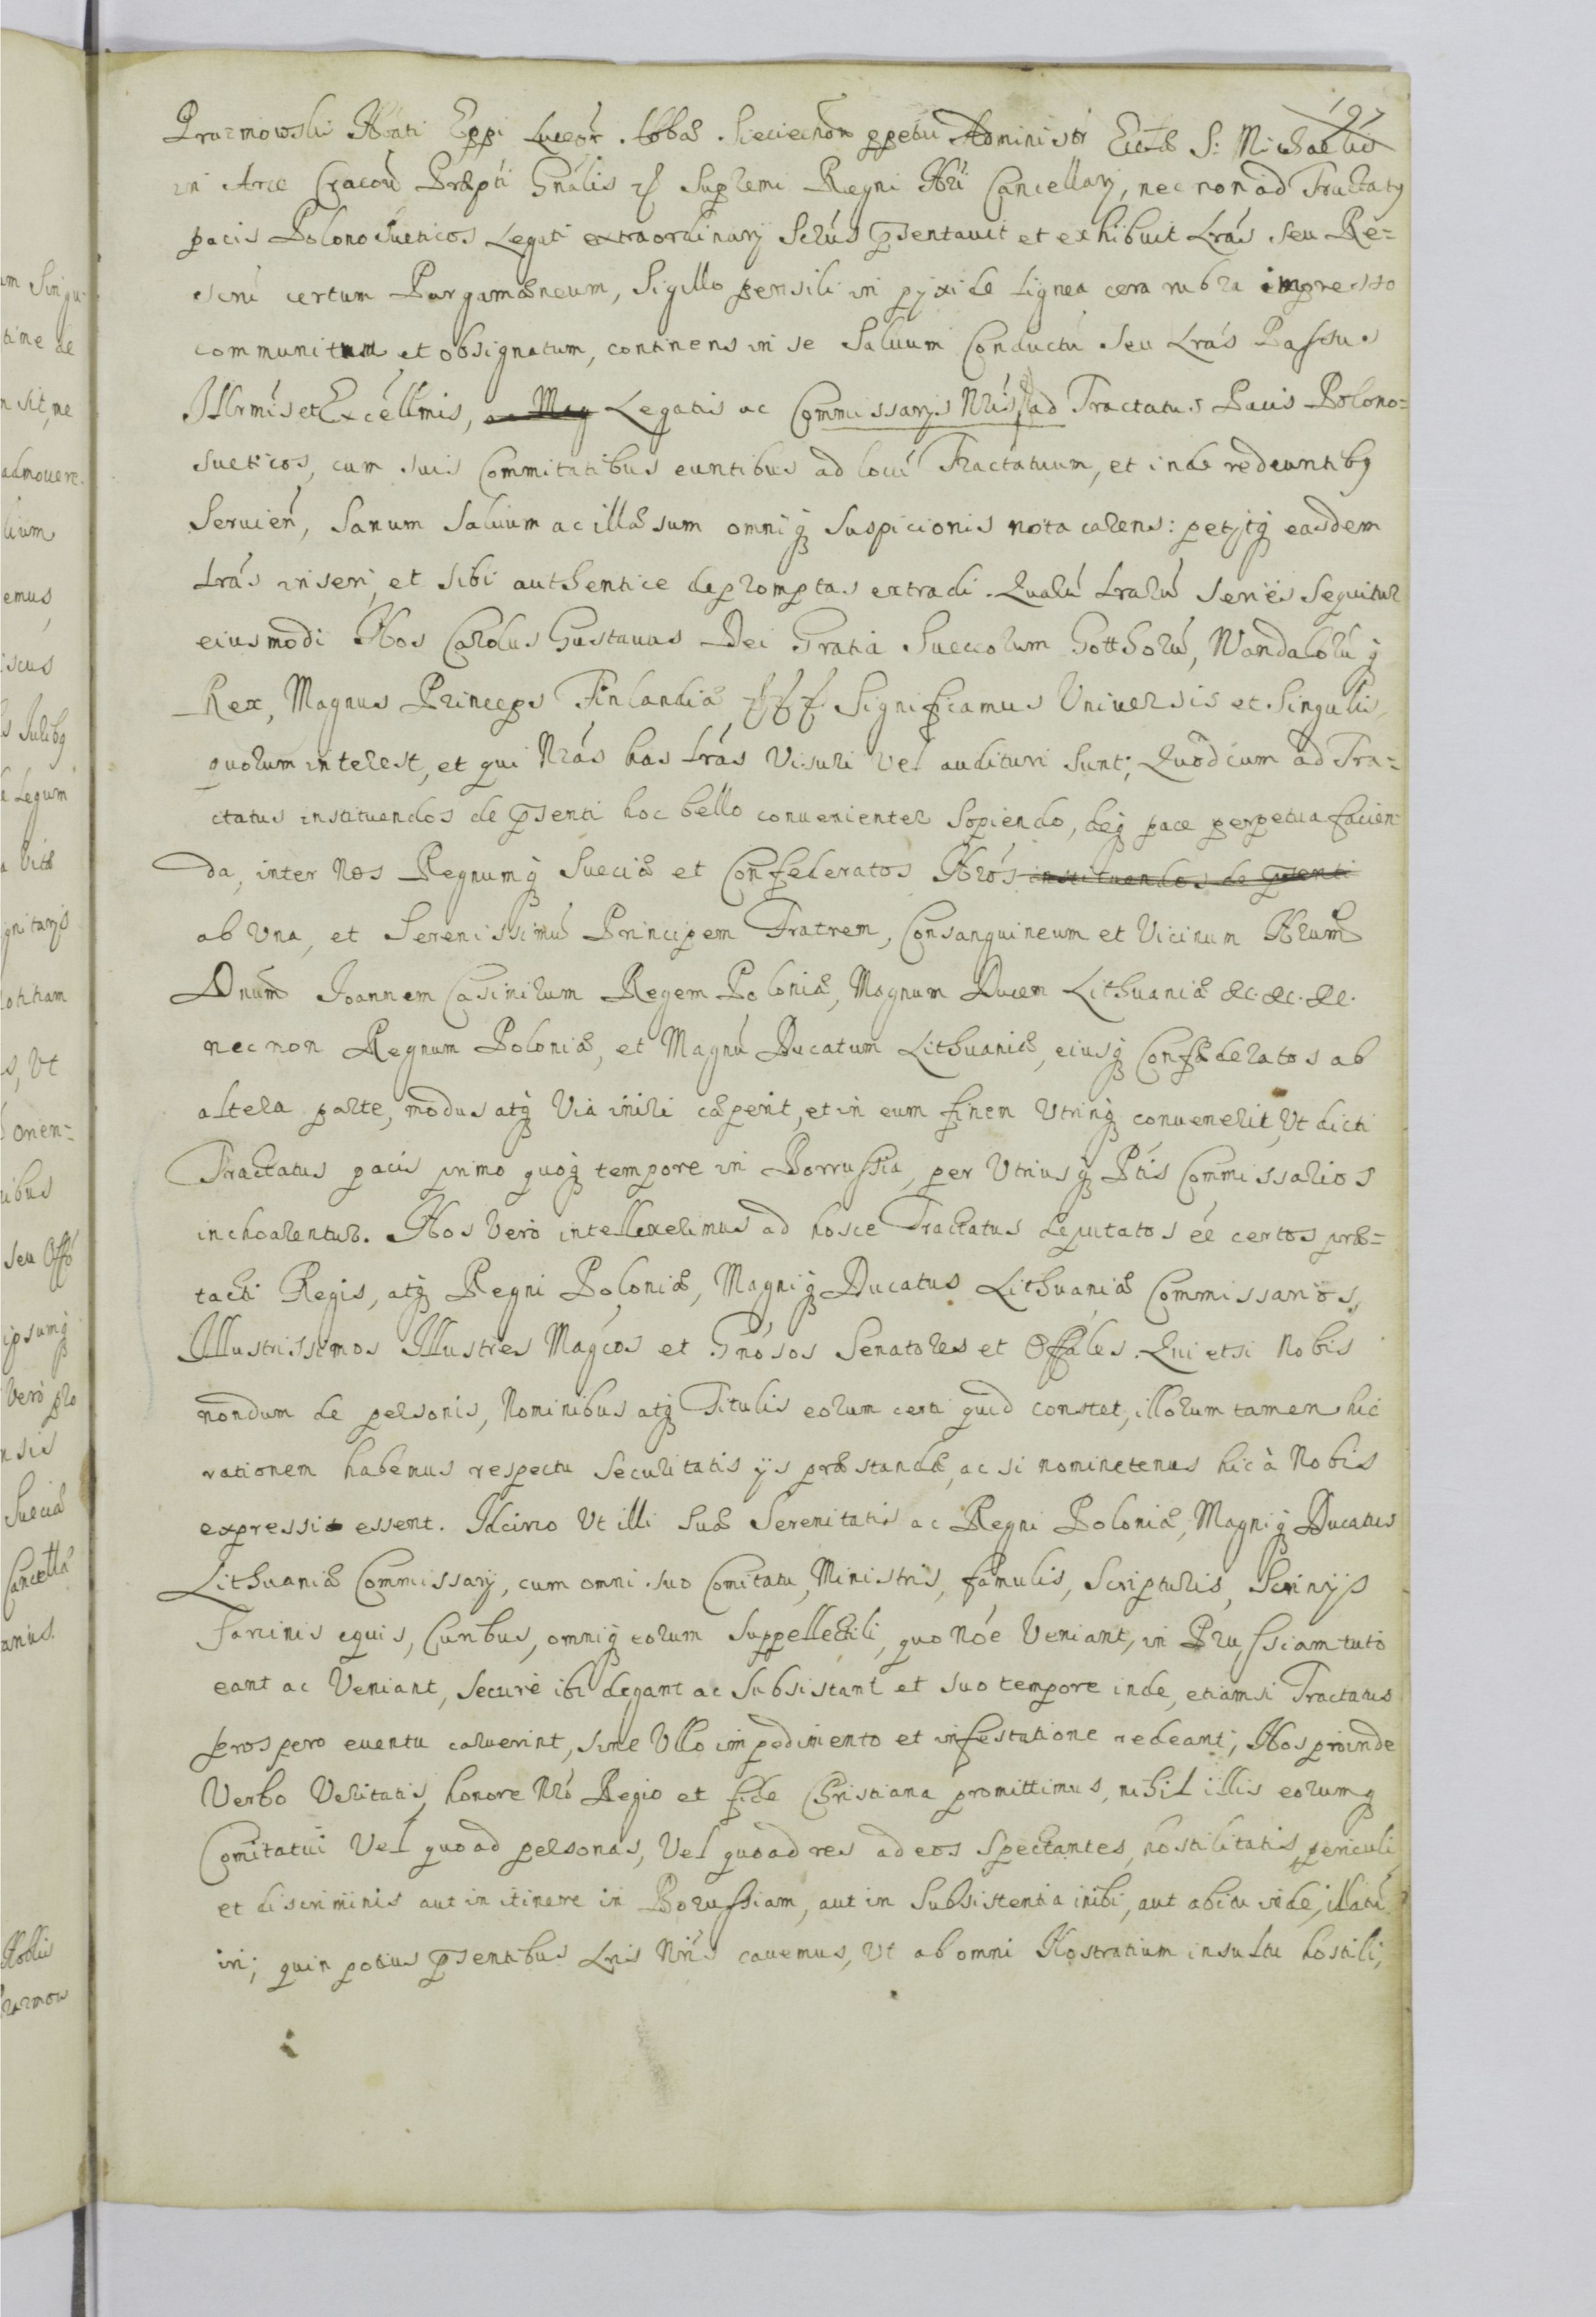 197
Prazmowski Nřati Eppi Luceoŕ Abbæ Sieciechoŕ ppetui Administŕ Eccłæ S: Michaelis
in Arce Cracoú Præpti Gnális et Supremi Regni Nŕi Cancellarij, nec non ad Tractatq
pacis Polono Sueticos Legati extraordinarij Scrús psentauit et exhibuit Lrás seu Re=
scrú certum Pargamæneum, Sigillo pensili in pyxide Lignea cera rubra impresso
communitum et obsignatum, continens in se Saluum Conductú Seu Lrás Passus
Illrmís et Excellmís, ac Mag Legatis ac Commissarijs Nrís ad Tractatus Pacis Polono=
sueticos, cum suis Commitatibus euntibus ad locú Tractatuum, et inde redeuntibq
Seruień, Sanum Saluum ac illæsum omniq Suspicionis nota carens: petijtq easdem
Lrás inseri, et sibi authentice depromptas extradi. Quarú Lrarú Series Sequitur
eiusmodi Nos Carolus Gustauus Dei Gratia Sueccorum Gotthorú, Wandalorúq
Rex, Magnus Princeps Finlandiæ fff Significamus Uniuersis et Singulis,
quorum interest, et qui Nrás has Lrás Visuri Vel audituri Sunt; Quod cum ad Tra=
ctatus instituendos de psenti hoc bello conuenienter Sopiendo, deq pace perpetua facien=
da, inter Nos Regnumq Sueciæ et Confederatos Nrós instituendos de psenti
ab Una, et Serenissimú Principem Fratrem, Consanguineum et Vicinum Nrum
Dnum Joannem Casimirum Regem Poloniæ, Magnum Ducem Lithuaniæ &c. &c. &c.
nec non Regnum Poloniæ, et Magnú Ducatum Lithuaniæ, eiusq Confæderatos ab
altera parte, modus atq Via iniri cæperit, et in eum finem Utrinq conuenerit, Ut dicti
Tractatus pacis primo quoq tempore in Borrussia, per Utriusq Ptis Commissarios
inchoarentur. Nos Verò intellexerimus ad hosce Tractatus deputatos éé certos præ=
tacti Regis, atq Regni Poloniæ, Magniq Ducatus Lithuaniæ Commissarios,
Illustrissimos Illustres Magcos et Gnósos Senatores et Offáles. Qui etsi Nobis
nondum de personis, Nominibus atq Titulis eorum certi quid constet, illorum tamen hic
rationem habemus respectu Securitatis ijs præstandæ, ac si nominetenus hic à Nobis
expressi essent. Idcirco Ut illi Suæ Serenitatis ac Regni Poloniæ, Magniq Ducatus
Lithuaniæ Commissarij, cum omni suo Comitatu, Ministris, famulis, Scripturis, Scrinijs
farcinis equis, Curribus, omniq eorum Suppellectili, quo Nóe Veniant, in Prussiam tutò
eant ac Veniant, Securè ibi degant ac Subsistant et suo tempore inde, etiamsi Tractatus
prospero euentu caruerint, sine Ullo impedimento et infestatione redeant; Nos proinde
Verbo Veritatis, honore Nró Regio et fide Christiana promittimus, nihil illis eorumq
Comitatui Vel quoad personas, Vel quoad res ad eos Spectantes, hostilitatis, periculi
et discriminis aut in itinere in Borussiam, aut in Subsistentia inibi, aut abitu inde, illatú
iri; quin potius psentibus Lris Nrís cauemus, Ut ab omni Nostratium insultu hostili,